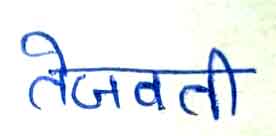 तेजवती